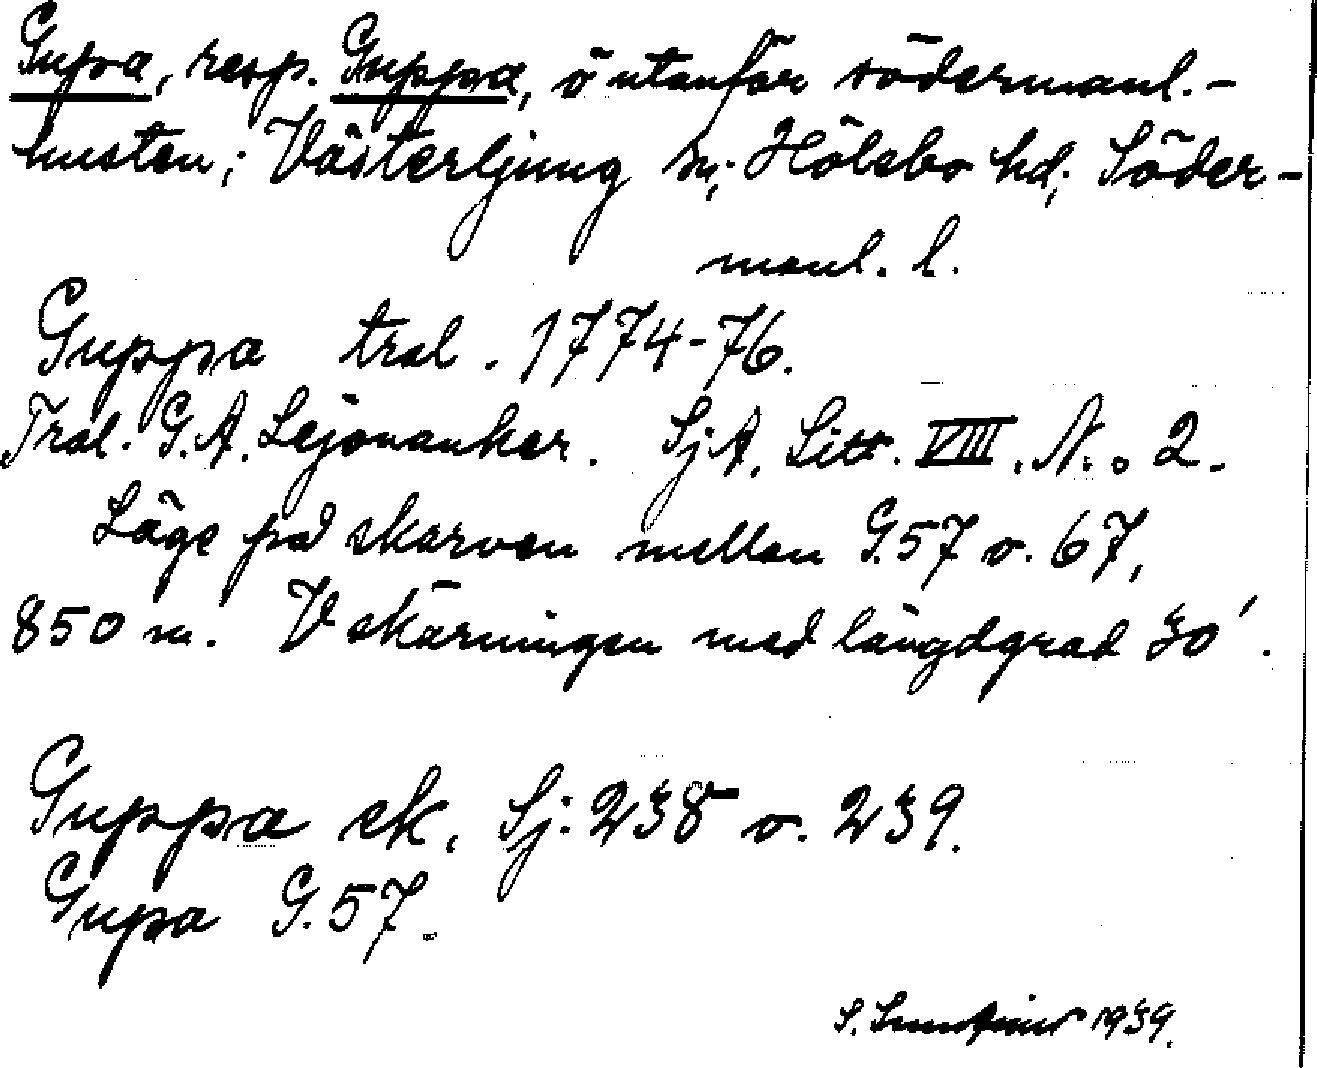 Gupa, resp. Guppa, ö utanför södermanl.-
kusten; Västerljung sn; Hölebo hd; Söder-
manl. l.
Guppa tral. 1774-76.
Tral. G. A. Lejonanker. SjA. Litt. VIII. N:o 2.
Läge på skarven mellan G.57 o. 67,
850 m. V skärningen med längdgrad 30'.
Guppa sk. Sj. 238 o. 239.
Gupa G. 57.
S. 1939.